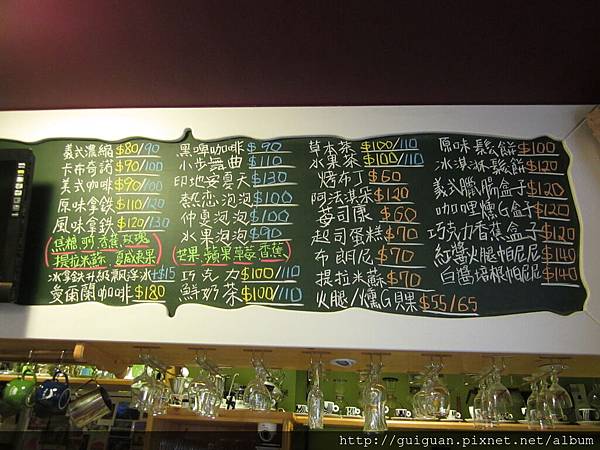 義式濃縮 $80/90
卡布奇諾 $90/100
美式咖啡 $90/100
原味拿鐵 $110/120
風味拿鐵 $120/130
(焦糖.香蕉.玫瑰
提拉米蘇.夏威夷果)
冰拿鐵升級漂浮冰+$15
愛爾蘭咖啡 $180
黑啤咖啡 $90
小步舞曲 $110
印地安夏天 $130
熱戀泡泡 $100
仲夏泡泡 $100
水果泡泡 $90
(芒果.蘋果.草莓.香蕉)
巧克力 $100/110
鮮奶茶 $100/110
草本茶 $100/110
水果茶 $100/110
烤布丁 $60
阿法淇朵 $120
莓司康 $60
起司蛋糕 $70
布朗尼 $70
提拉米蘇 $70
火腿/燻G貝果 $55/65
原味鬆餅 $100
冰淇淋鬆餅 $120
義式臘腸盒子 $120
咖哩燻G盒子 $120
巧克力香蕉盒子 $120
紅醬火腿帕尼尼 $140
白醬培根帕尼尼 $140
http://guiguan.pixnet.net/album